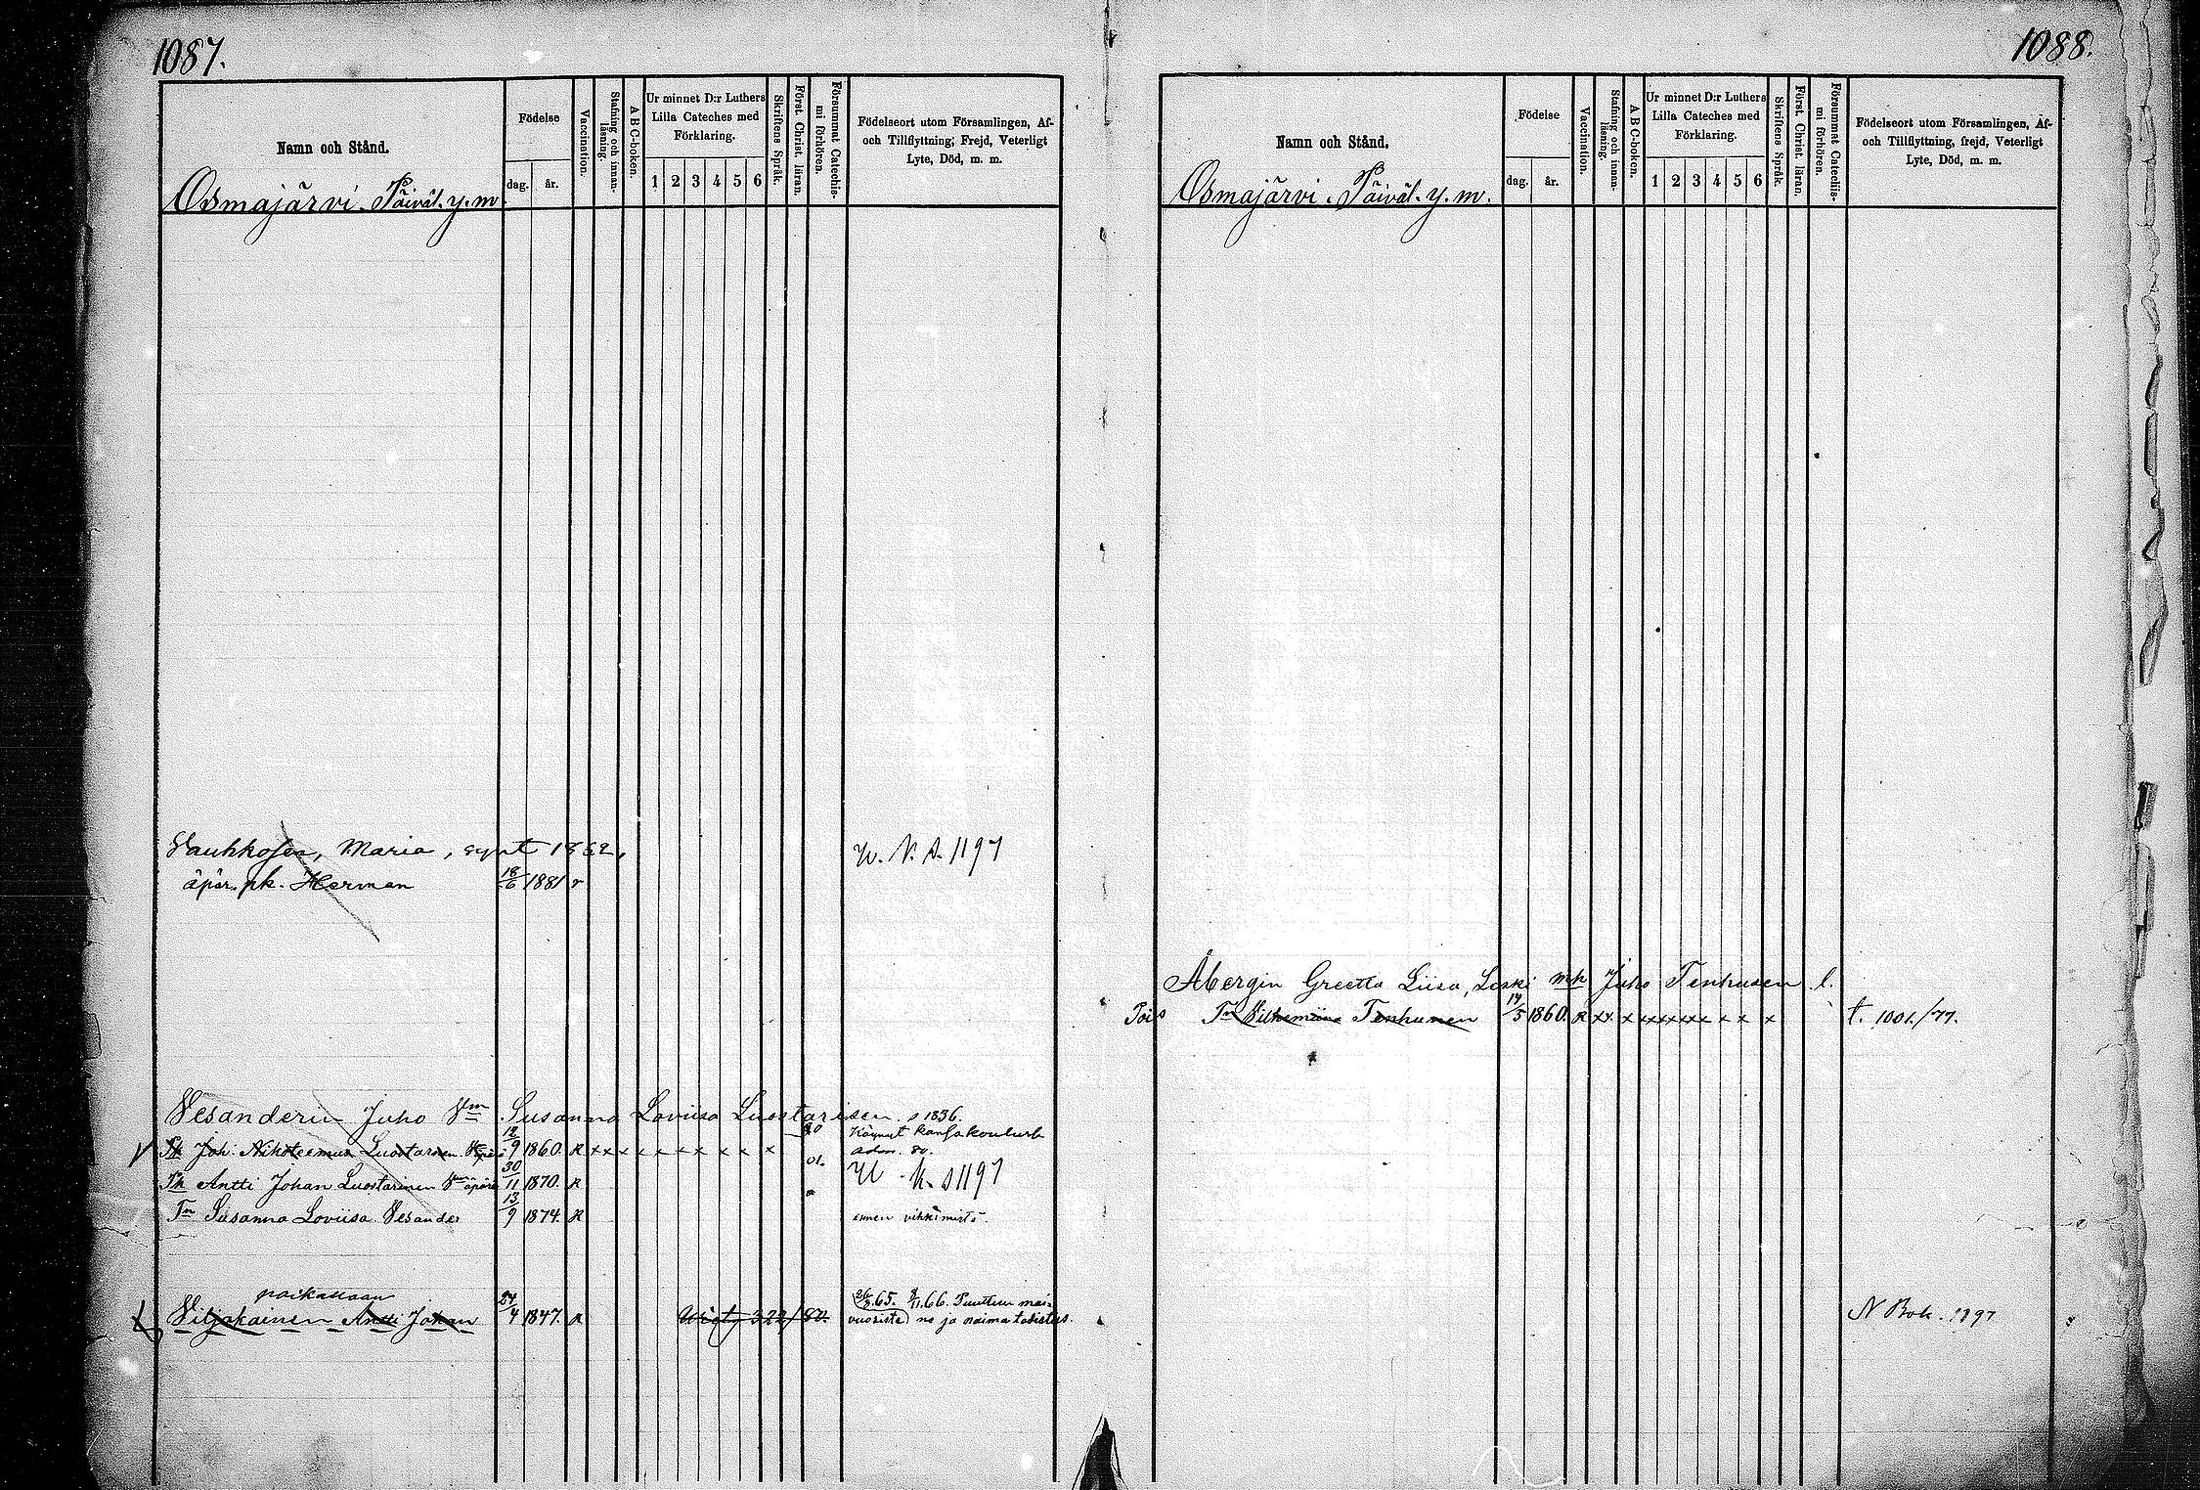 1087.
Namn och Stånd.
Födelse
dag. år.
Vaccination.
Stafning och innan-läsning.
A B C-boken.
Ur minnet D:r Luthers
Lilla Cateches med
Förklaring.
1 2 3 4 5 6
Skriftens Språk.
Först. Christ. läran.
Försummat Catechis-
mi förhören.
Födelseort utom Församlingen, Af-
och Tillflyttning; Frejd, Veterligt
Lyte, Död, m. m.
Osmajärvi. Päiväl. y. m.
Vauhkosen, Maria, synt 1862,
äpär. pk. Herman 18/6 1881 r
N. s. 1197
Vesanderin Juho Vm Susanna Loviisa Luostarisen s 1836.
Joh. Nikoteemus Luostarinen 12/9 1860. R x x x x x x x x x x Käynyt kansakoulusta
Adm. 80.
Pk Antti Johan Luostarinen 30/11 1870. R s 1197
Tr Susanna Loviisa Vesander 13/9 1874. R ennen vihkimistä.
poikanaan
Viljakainen Antti Johan 24/4 1847. R 322/80. 65. 8/11.66.
vuosista ne ja naima
1088.
Namn och Stånd.
Födelse
dag. år.
Vaccination.
Stafning och innan-läsning.
A B C-boken.
Ur minnet D:r Luthers
Lilla Cateches med
Förklaring.
1 2 3 4 5 6
Skriftens Språk.
Först. Christ. läran.
Försummat Catechis-
mi förhören.
Födelseort utom Församlingen, Af-
och Tillflyttning, frejd, Veterligt
Lyte, Död, m. m.
Osmajärvi. Päiväl. y. m.
Åbergin Greetta Liisa, Leski mp Juho Tenhusen l.
Pois Tr Vilhemiina Tenhunen 14/5 1860. R xx. x x x x x x x x x x t. 1001./77.
N Bok. 1897